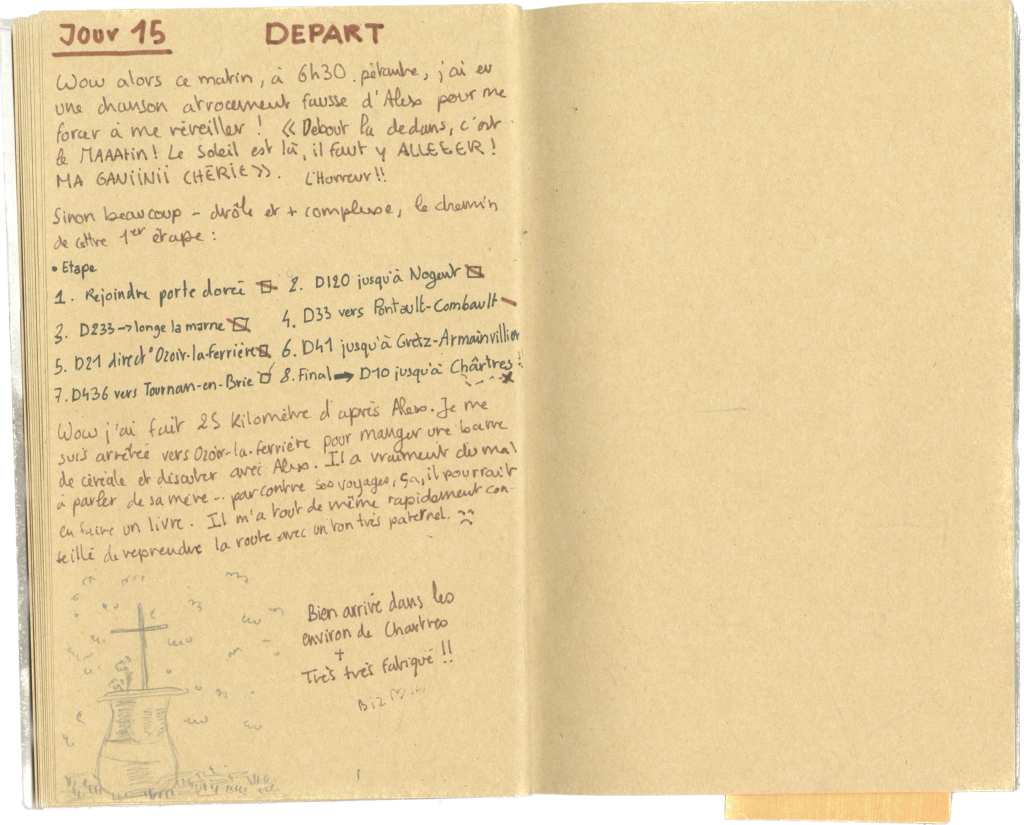 Jour 15 DEPART
Wow alors ce matin, à 6h30 pétante, j'ai eu
une chanson atrocement fausse d'Alex pour me
forcer à me réveiller ! « Debout la dedans, c'est
le MAAAtin ! Le Soleil est là, il faut y ALLEEER !
MA GANIINII CHÉRIE ». L'Horreur !!
Sinon beaucoup - drôle et + complexe, le chemin
de cette 1er étape :
• Etape
1. Rejoindre porte dorée 2. D120 jusqu'à Nogent
3. D233 → longe la marne 4. D33 vers Pontault-Combault
5. D21 direct° Ozoir-la-ferrière 6. D41 jusqu'à Gretz-Armainvillier
7. D436 vers Tournan-en-Brie 8. Final → D10 jusqu'à Chârtres !
Wow j'ai fait 25 kilomètre d'après Alex. Je me
suis arrêtée vers Ozoir-la-ferrière pour manger une barre
de céréale et discuter avec Alex. Il a vraiment du mal
à parler de sa mère... par contre ses voyages, ça, il pourrait
en faire un livre. Il m'a tout de même rapidement con-
seillé de reprendre la route avec un ton très paternel.
Bien arrivé dans les
environ de Chartres
+
Très très fatigué !!